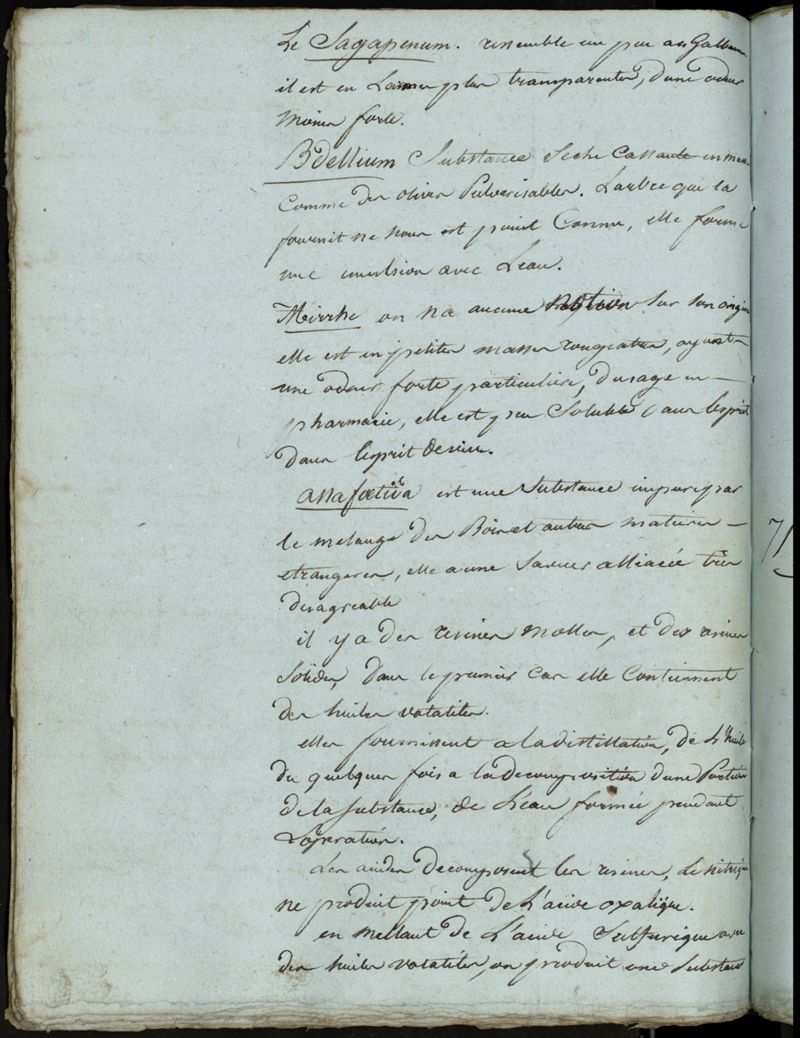 Le Sagapenum. ressemble un peu au Galbanum
il est en Larmes plus transparentes, d'une odeur
Moins forte.
Bdellium Substance Seche Cassante en mas
Comme des olives Pulverisables. L'arbre que la
fournit ne nous est point Connu, elle forme
une emulsion avec L'eau.
Mirrhe on n'a aucune notion Sur son origine
elle est en petites masses rougeatres, ayant
une odeur forte particuliere, d'usage en
pharmacie, elle est peu Soluble dans l'esprit
dans l'esprit de vin.
assafoetida est une Substance impure par
le melange des Bois et autres matieres
etrangeres, elle a une Saveur alliacée très
desagreable
il y a des resines molles, et des resines
Solides, dans le premier cas elle Contiennent
des huiles volatiles.
elles fournissent a la distillation, de L'huile
du quelques fois a la decomposition d'une Portion
de la Substance, de L'eau formée pendant
L'operation.
Les acides decomposent les resines, Le nitrique
ne produit point de L'acide oxalique.
en mettant de L'acide Sulfurique avec
des huiles volatiles, on produit une Substance
71